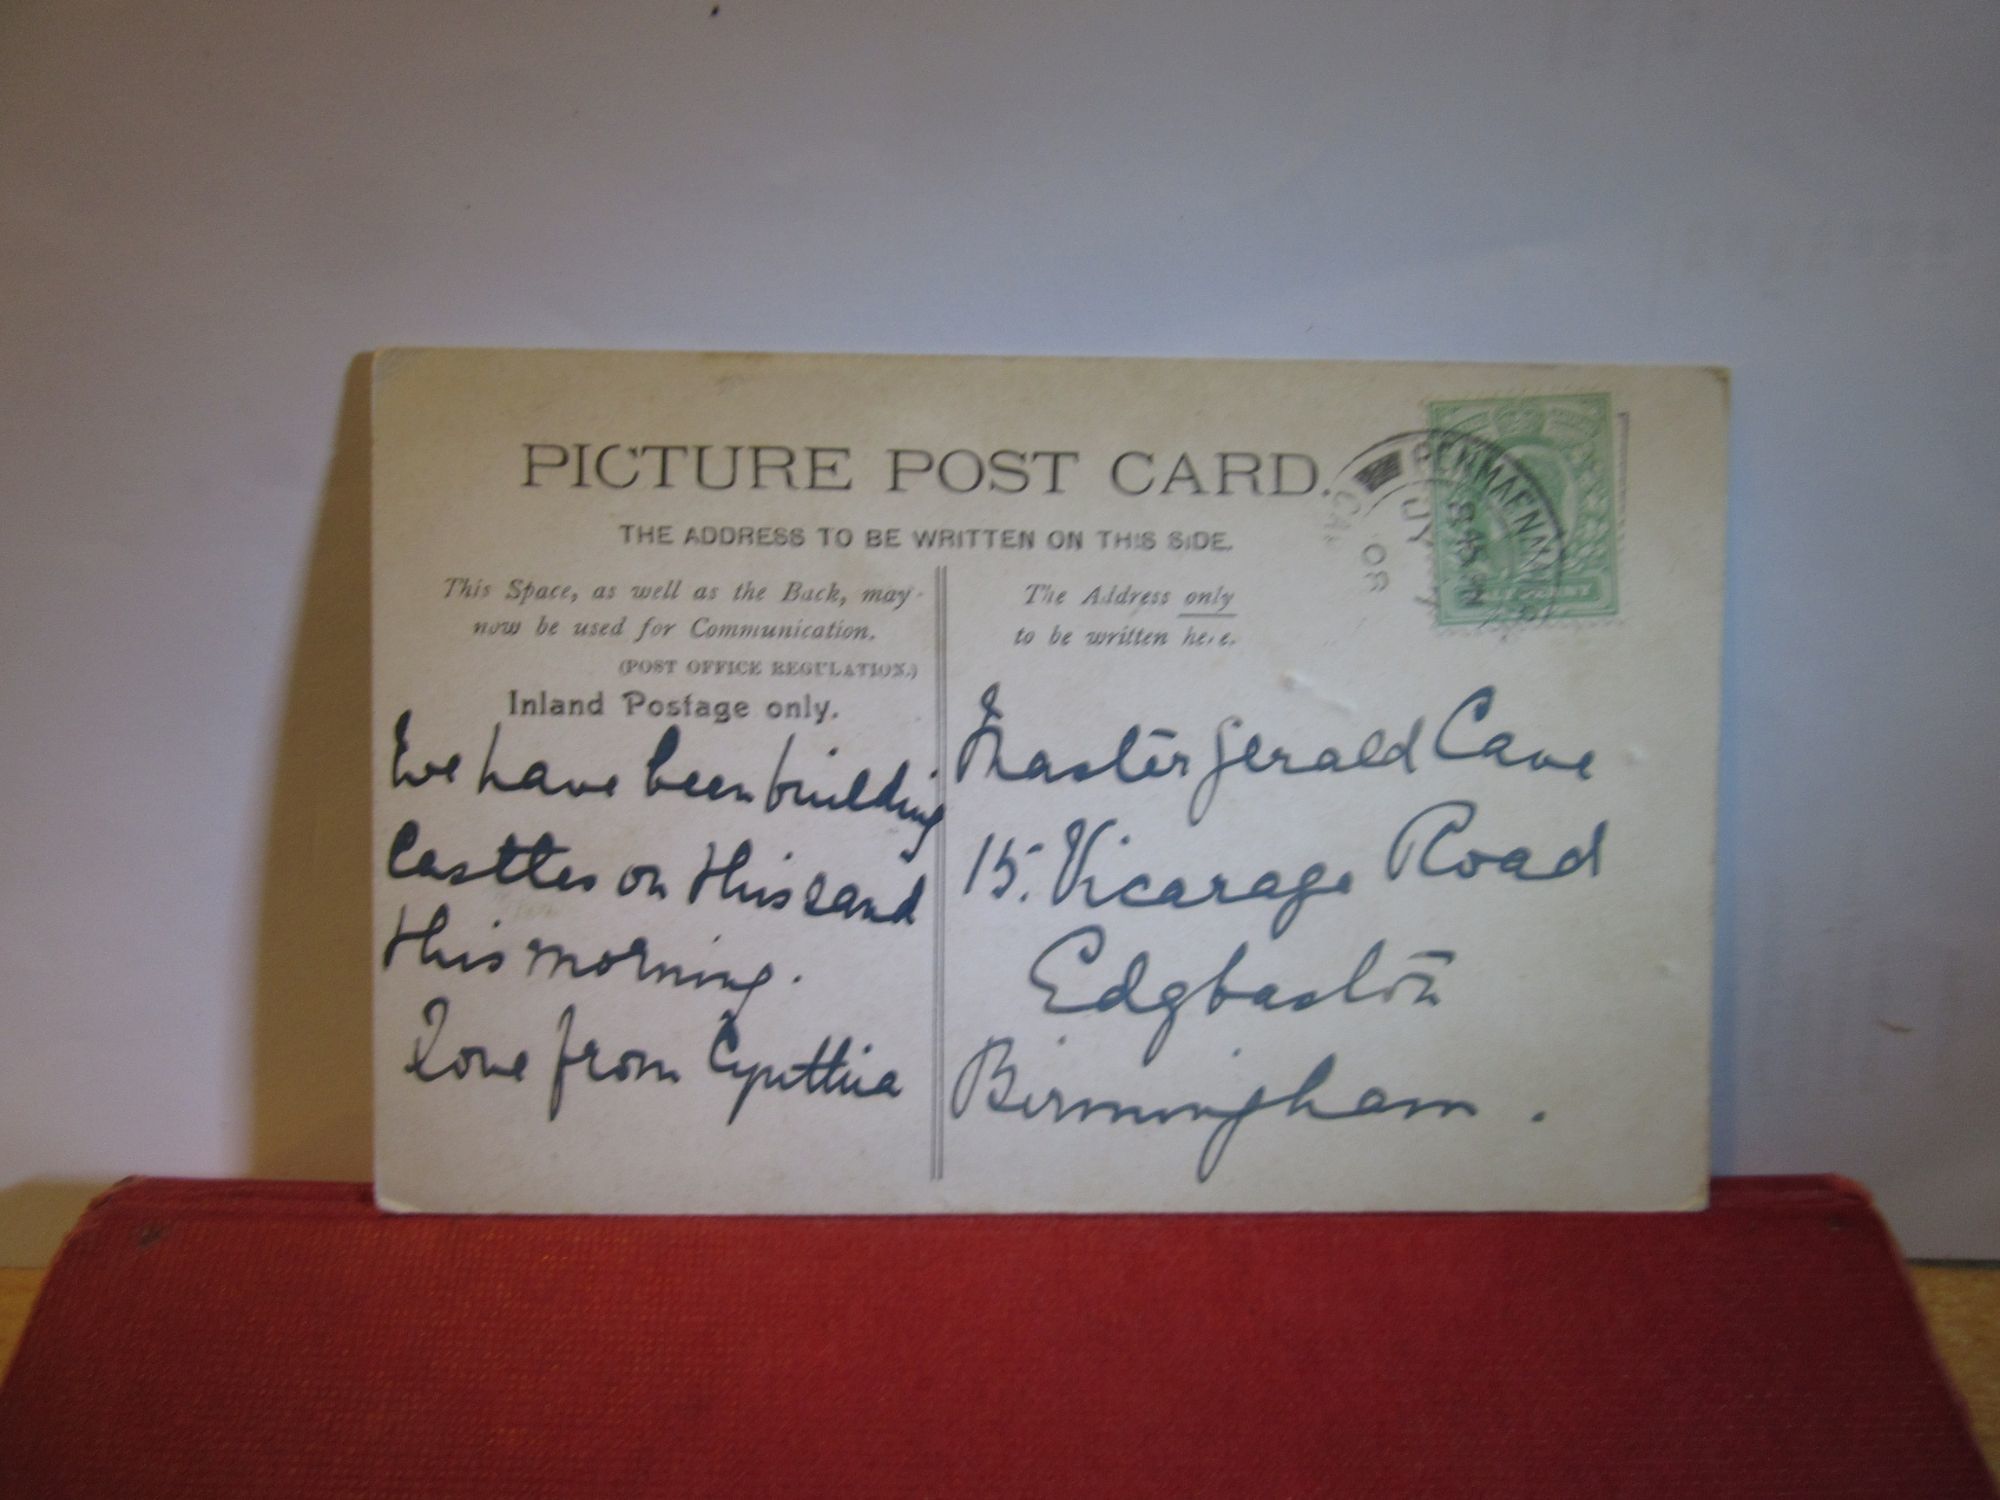 PICTURE POST CARD.
THE ADDRESS TO BE WRITTEN ON THIS SIDE.
This Space, as well as the Back, may
now be used for Communication.
(POST OFFICE REGULATION.)
Inland Postage only.
We have been building
Castles on this sand
this morning.
Love from Cynthia
The Address only
to be written here.
Master Gerald Cave
15. Vicarage Road
Edgbaston
Birmingham.
PENMAENMAWR
8.45 PM
JY
08